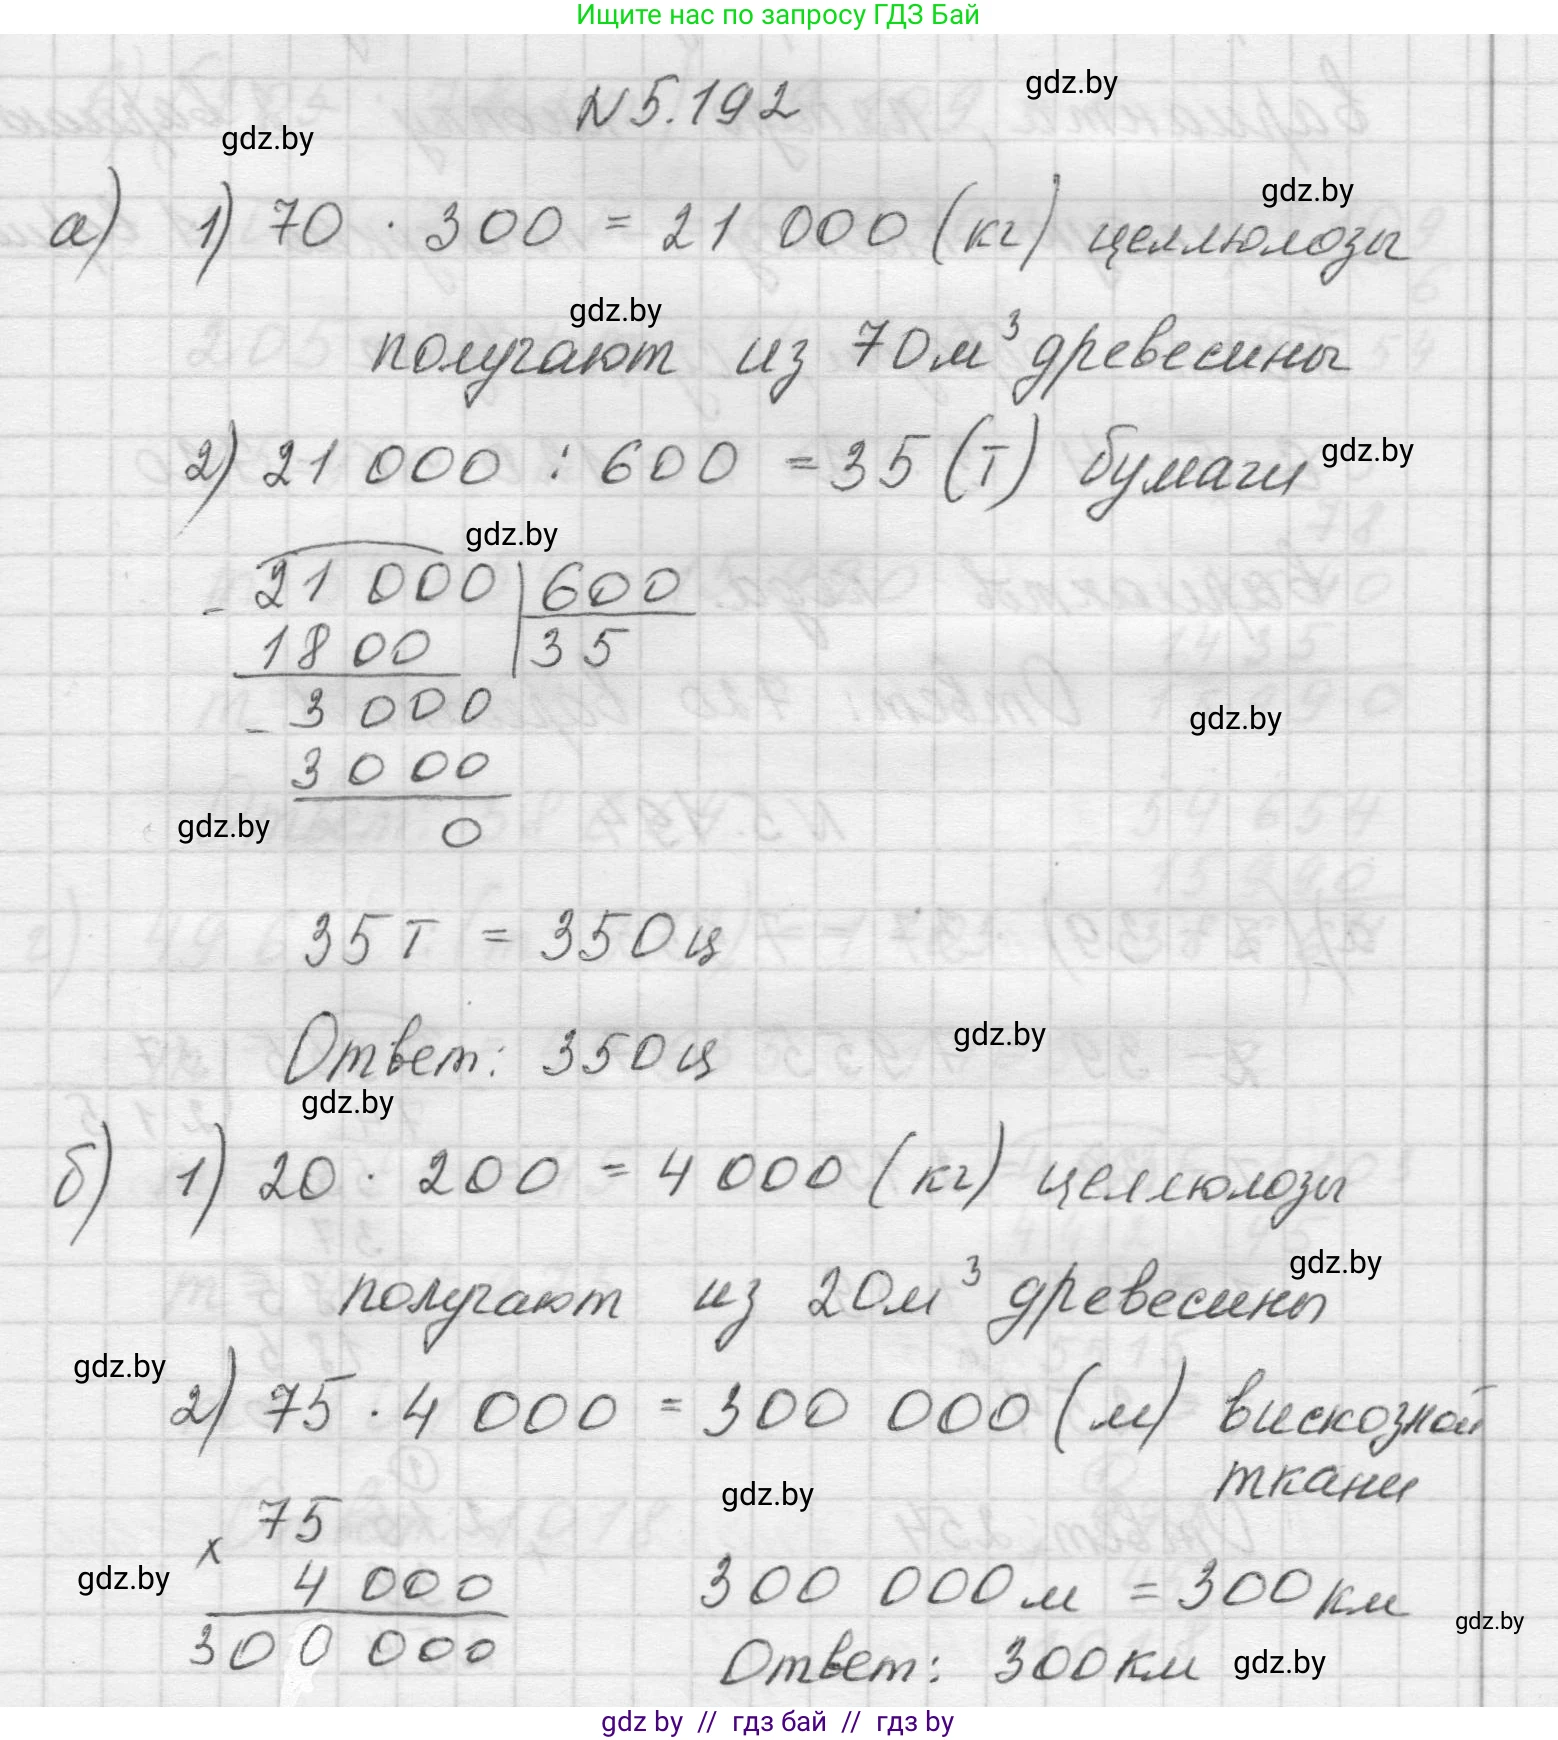 Ищите нас по запросу ГДЗ Бай
gdz.by
N 5.192
gdz.by
gdz.by
а) 1) 70 · 300 = 21 000 (кг) целлюлозы
gdz.by
получают из 70м³ древесины
2) 21 000 : 600 = 35 (т) бумаги
gdz.by
gdz.by
- 21 000 | 600
1800 | 35
- 3000
gdz.by
3000
gdz.by
0
35 т = 350 ц
Ответ: 350 ц
gdz.by
gdz.by
б) 1) 20 · 200 = 4 000 (кг) целлюлозы
gdz.by
получают из 20м³ древесины
gdz.by
2) 75 · 4 000 = 300 000 (м) вискозной
ткани
gdz.by
75
x
gdz.by
4 000
300 000 м = 300 км
gdz.by
300 000
Ответ: 300 км
gdz.by
gdz by // гдз бай // gdz by